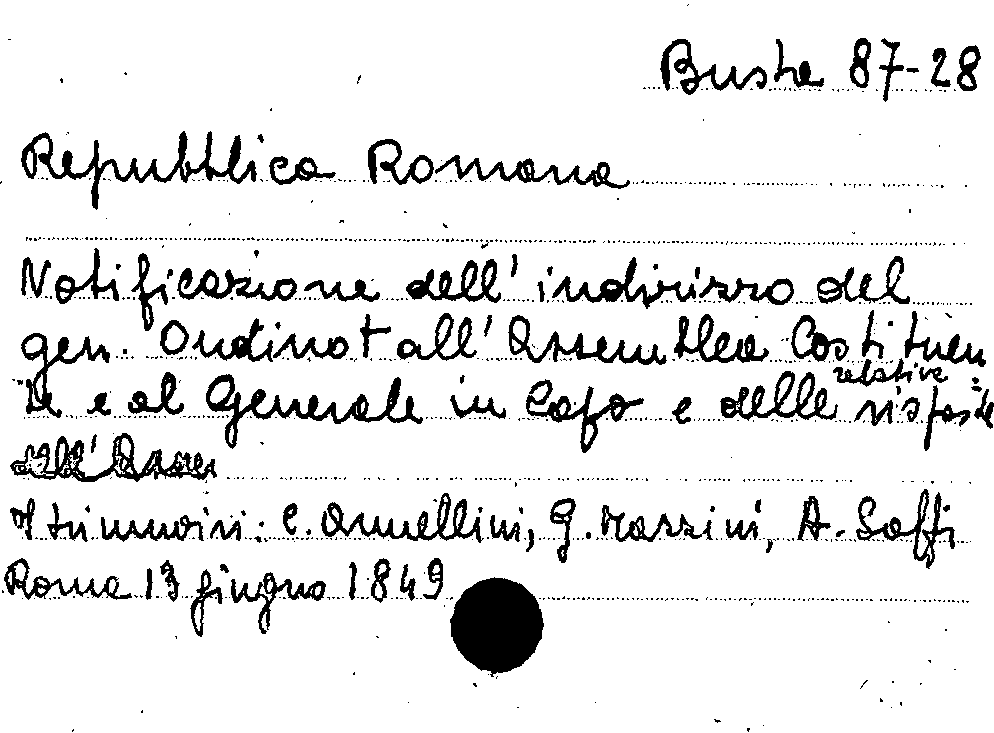 Busta 87-28
Repubblica Romana
Notificazione dell' indirizzo del
gen. Oudinot all' Assemblea Costituen
te e al Generale in Capo e delle relative risposte
I triumviri: C. Armellini, G. Mazzini, A. Saffi
Roma 13 giugno 1849